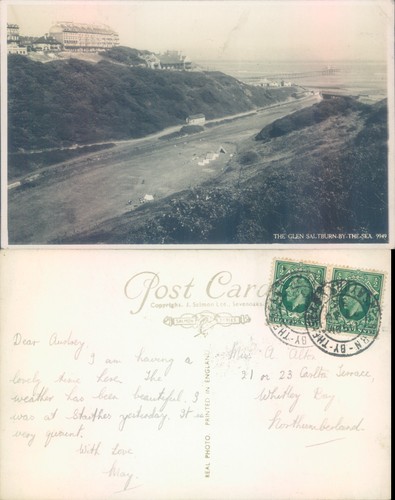 THE GLEN SALTBURN-BY-THE-SEA. 9949
Post Card
Copyright. J. Salmon Ltd., Sevenoaks
REAL PHOTO. PRINTED IN ENGLAND.
Dear Audrey
I am having a
lovely time here. The
weather has been beautiful. I
was at Staithes yesterday. It is
very quaint.
With Love
May.
Miss A
21 or 23 Terrace,
Whitley Bay
Northumberland